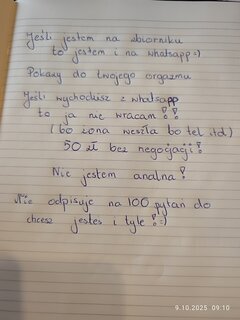 Jeśli jestem na zbiorniku
to jestem i na whatsapp =)
Pokazy do twojego orgazmu
Jeśli wychodzisz z whatsapp
to ja nie wracam!!
(bo żona weszła bo tel itd)
50 zł bez negocjacji!
Nie jestem analna!
Nie odpisuje na 100 pytań do
chcesz jestes i tyle!! =)
9.10.2025 09:10